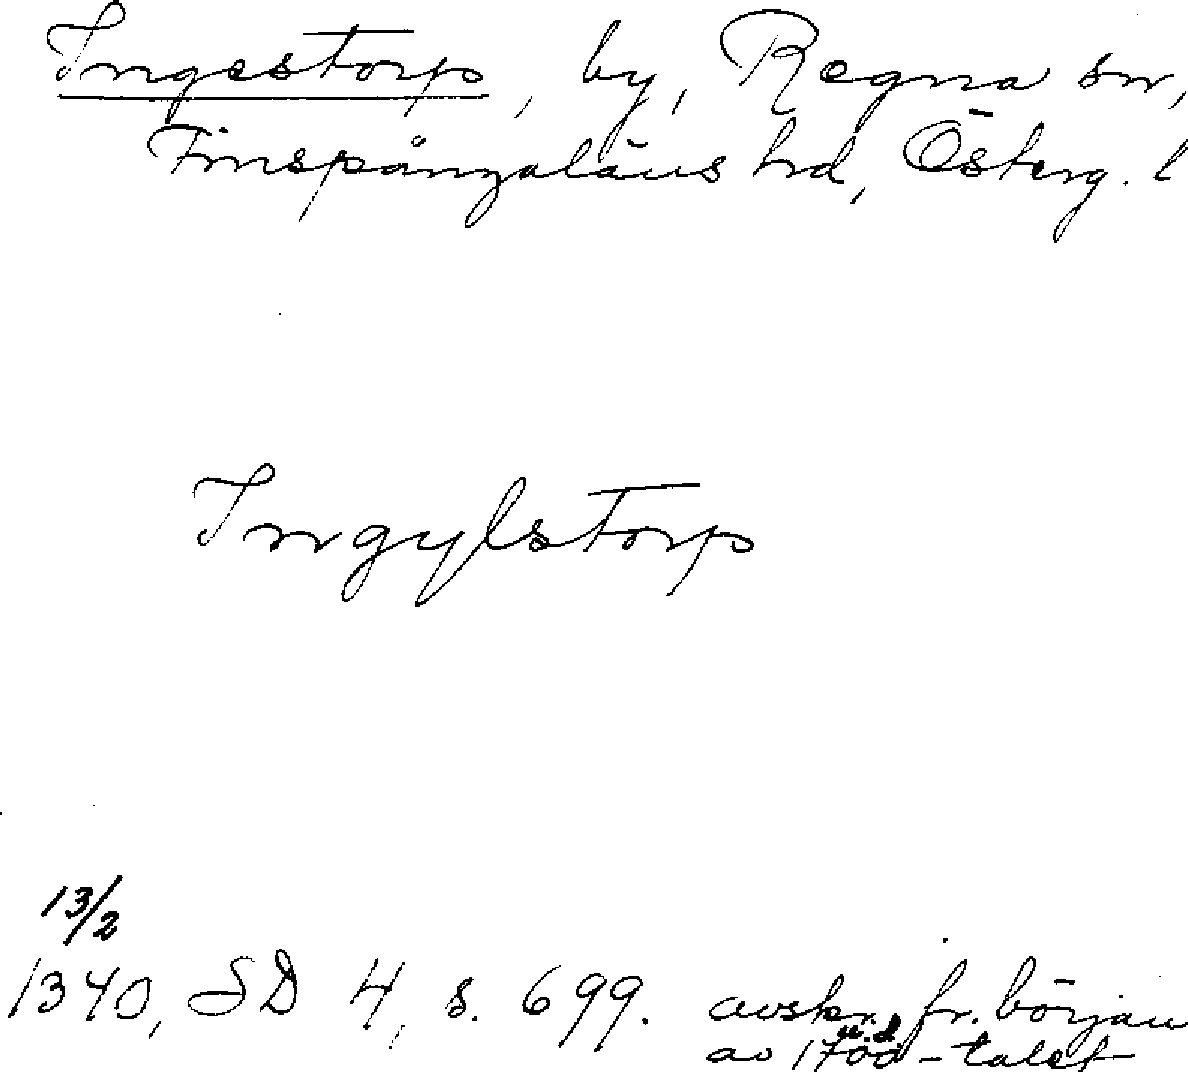 Ingestorp, by, Regna sn,
Finspångaläns hd, Österg. l
Ingylstorp
13/2
1340, SD 4, s. 699. avskr. fr. början
av 1700-talet